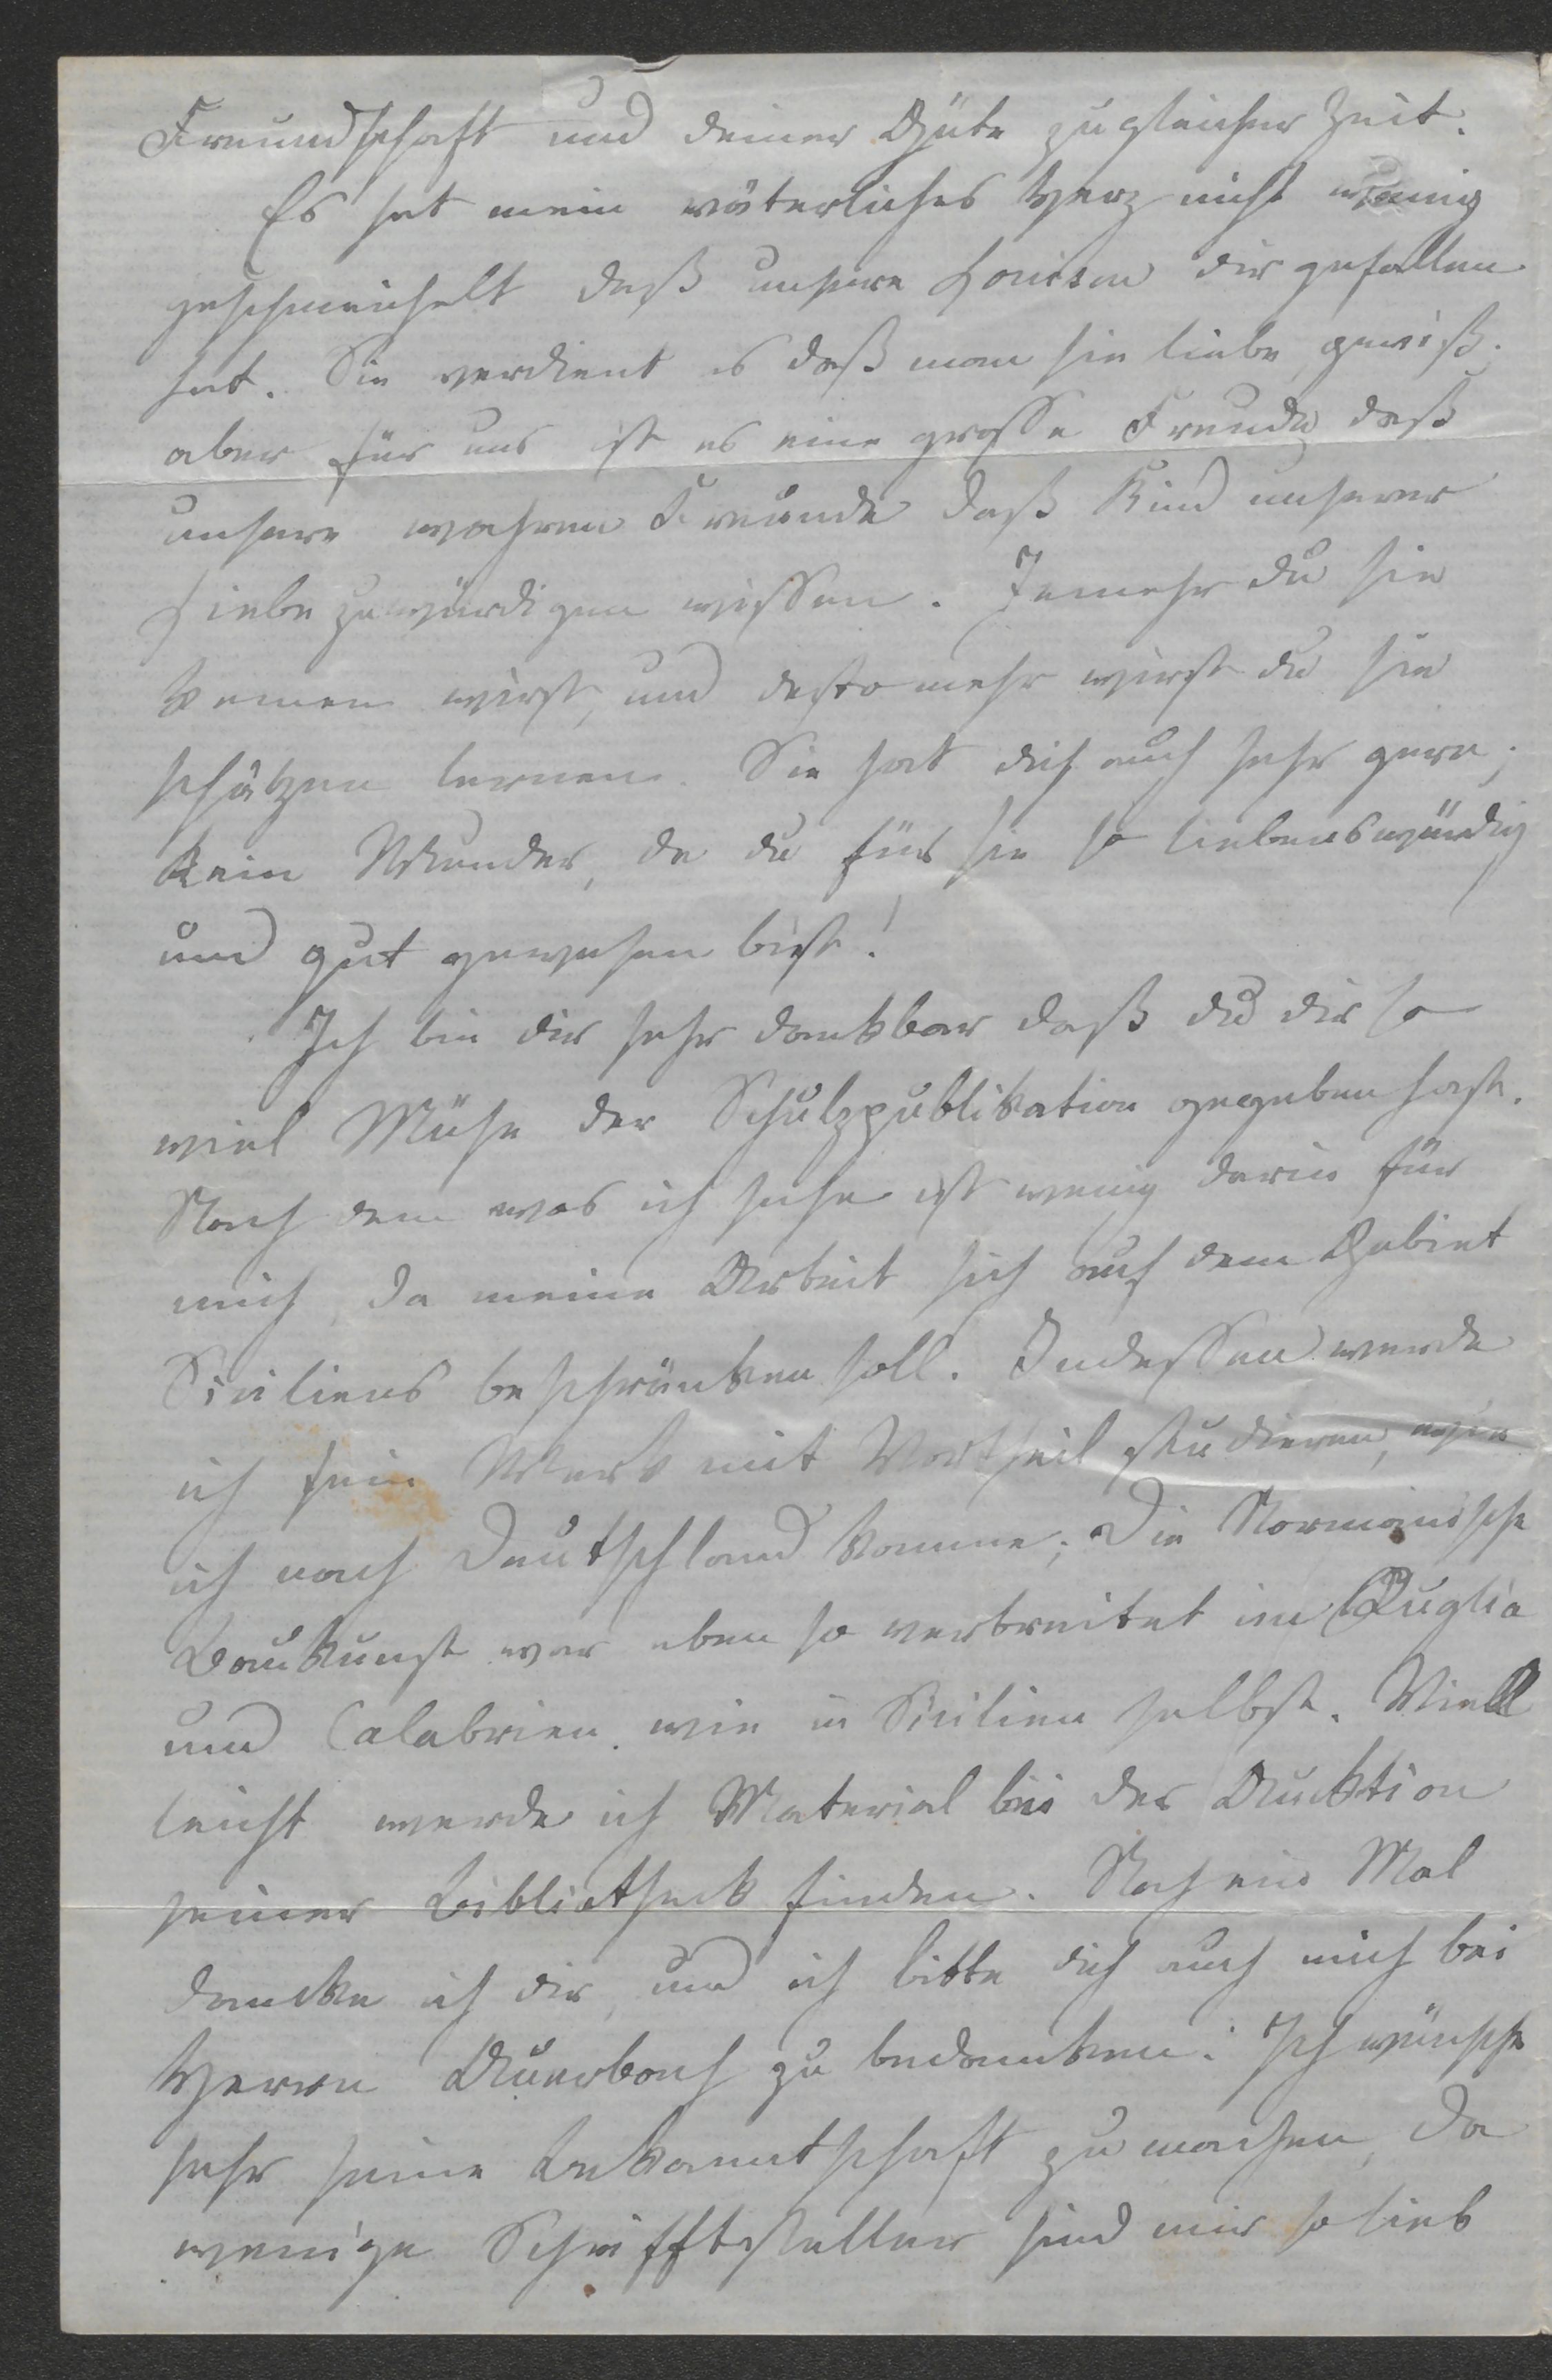 Freundschaft und deiner Güte zugleicher Zeit.
Es hat mein väterliches Herz nicht wenig
geschmeichelt daß unsere Louison dir gefallen
hat. Sie verdient es daß man sie liebe, gewiß;
aber für uns ist es eine grosse Freude, daß
unsere wahren Freunde daß Kind unserer
Liebe zu würdigen wissen. Jemehr du sie
kennen wirst, und desto mehr wirst du sie
schätzen lernen. Sie hat dich auch sehr gern;
kein Wunder, da du für sie so liebenswürdig
und gut gewesen bist!
Ich bin dir sehr dankbar daß du dir so
viel Mühe der Schulzpublikation gegeben hast.
Nach dem was ich sehe ist wenig darin für
mich, da meine Arbeit sich auf dem Gebiet
Siciliens beschränken soll. Indessen werde
ich sein Werk mit Vortheil studieren, wie
ich nach Deutschland komme; Die Normanische
Baukunst war eben so verbreitet im Puglia
und Calabrien wie in Sicilien selbst. Viell
leicht werde ich Material bei der Aucktion
seiner Bibliotheck finden. Noch ein Mal
dancke ich dir, und ich bitte dich auch mich bei
Herrn Auerbach zu bedanken. Ich wünsche
sehr seine Bekanntschaft zu machen, da
wenige Schrifftsteller sind mir so lieb